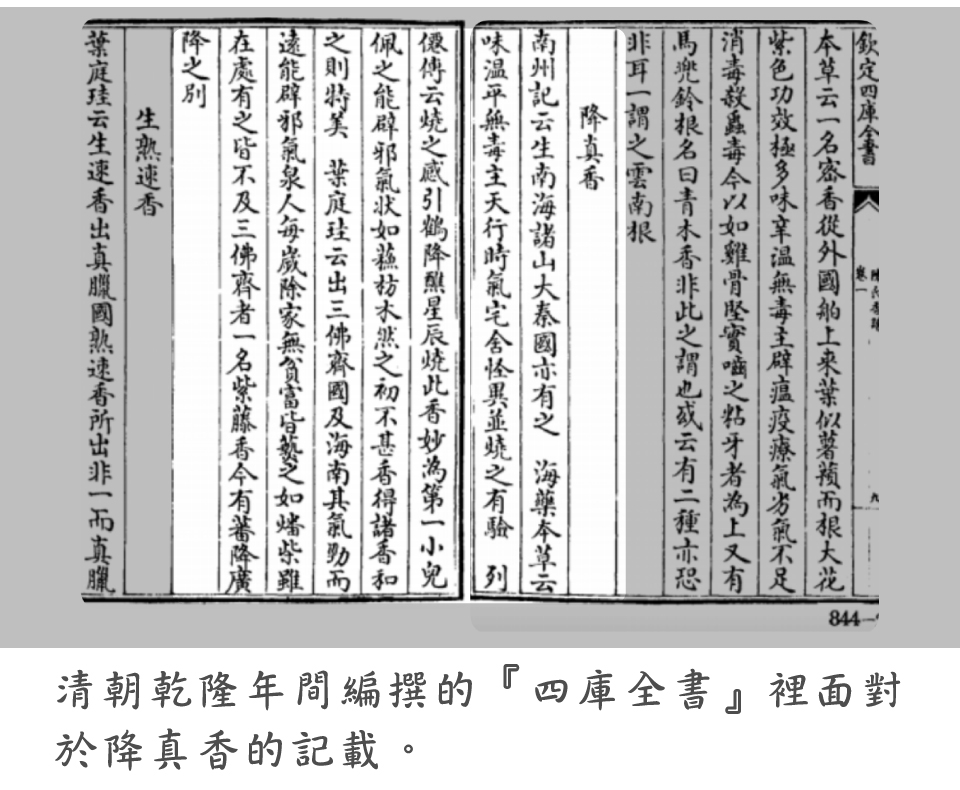 欽定四庫全書
卷一
本草云一名密香從外國舶上來葉似薯蕷而根大花
紫色功效極多味辛溫無毒主辟瘟疫療氣劣氣不足
消毒殺蟲毒今以如雞骨堅實嚙之粘牙者為上又有
馬兜鈴根名曰青木香非此之謂也或云有二種亦恐
非耳一謂之雲南根
降真香
南州記云生南海諸山大秦國亦有之 海藥本草云
味溫平無毒主天行時氣宅舍怪異並燒之有驗 列
僊傳云燒之感引鶴降醮星辰燒此香妙為第一小兒
佩之能辟邪氣狀如蘇枋木然之初不甚香得諸香和
之則特美 葉庭珪云出三佛齊國及海南其氣勁而
遠能辟邪氣泉人每歲除家無貧富皆爇之如燔柴雖
在處有之皆不及三佛齊者一名紫藤香今有蕃降廣
降之別
生熟速香
葉庭珪云生速香出真臘國熟速香所出非一而真臘
844
清朝乾隆年間編撰的『四庫全書』裡面對
於降真香的記載。